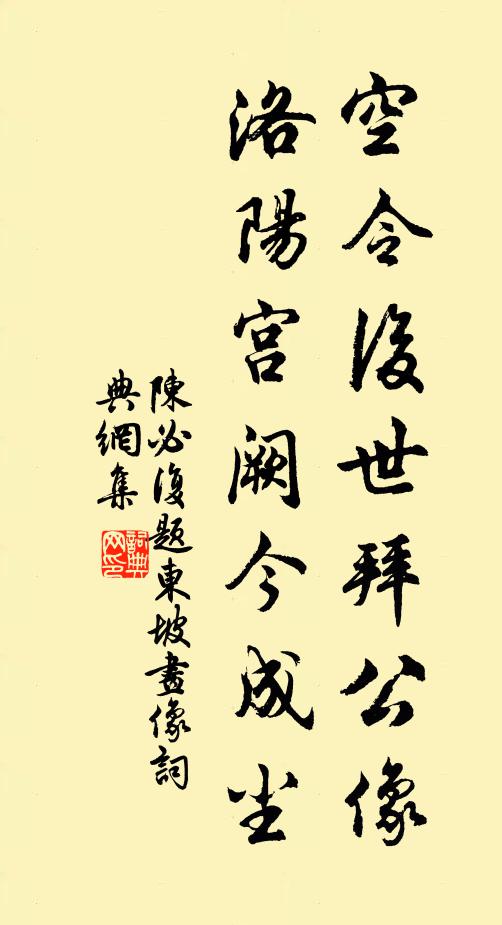 空令後世拜公像
洛陽宮闕今成尘
陳必復題東坡畫像詞
典網集
詞典
网印